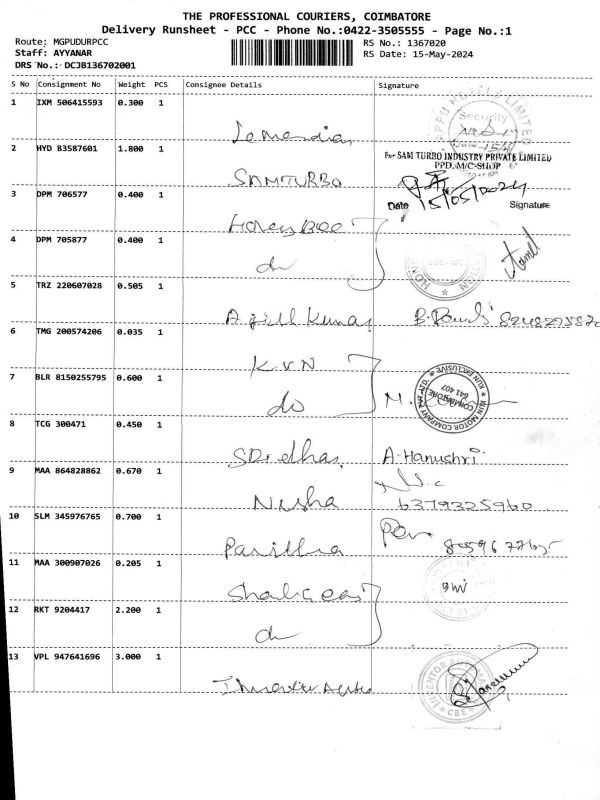 THE PROFESSIONAL COURIERS, COIMBATORE
Delivery Runsheet - PCC - Phone No.:0422-3505555 - Page No.:1
Route: MGPUDURPCC RS No.: 1367020
Staff: AYYANAR RS Date: 15-May-2024
DRS No.: DCJB136702001
S No Consignment No Weight PCS Consignee Details Signature
1 IXM 506415593 0.300 1
Le Meridien
Security
2 HYD 83587601 1.800 1
For SAM TURBO INDUSTRY PRIVATE LIMITED
PPD. M/C-SHOP
SAMTURBO
3 DPM 706577 0.400 1
Date 15/05/2024 Signature
Honey Bee
4 DPM 705877 0.400 1
do
5 TRZ 220607028 0.505 1
Kumar
6 TMG 200574206 0.035 1
K.V.N
7 BLR 8150255795 0.600 1
do
M.
KUN MOTOR COMPANY PVT. LTD. * KUN EXCLUSIVE *
COIMBATORE
641 407
8 TCG 300471 0.450 1
Sridhar A. Hanushri
9 MAA 864828862 0.670 1
Nisha 6379325960
10 SLM 345976765 0.700 1
Pavithra
11 MAA 300907026 0.205 1
12 RKT 9204417 2.200 1
do
13 VPL 947641696 3.000 1
* CBE *